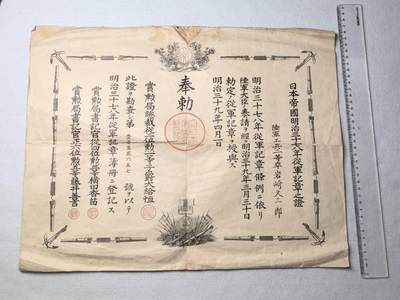 日本帝國明治三十七八年從軍記章之證
陸軍 一等卒岩崎又三郎
明治三十七八年從軍記章條例ニ依リ
陸軍大臣ノ奏請ヲ經明治三十九年三月三十日
勅定ノ從軍記章ヲ授與ス
明治三十九年四月一日
奉勅
賞勲局總裁從二位勲一等子爵大給恒
此證ヲ勘査シ第 號ヲ以テ
明治三十七八年從軍記章簿冊ニ登記ス
賞勲局書記官從四位勲三等横田香苗
賞勲局書記官正六位勲五等藤井善言